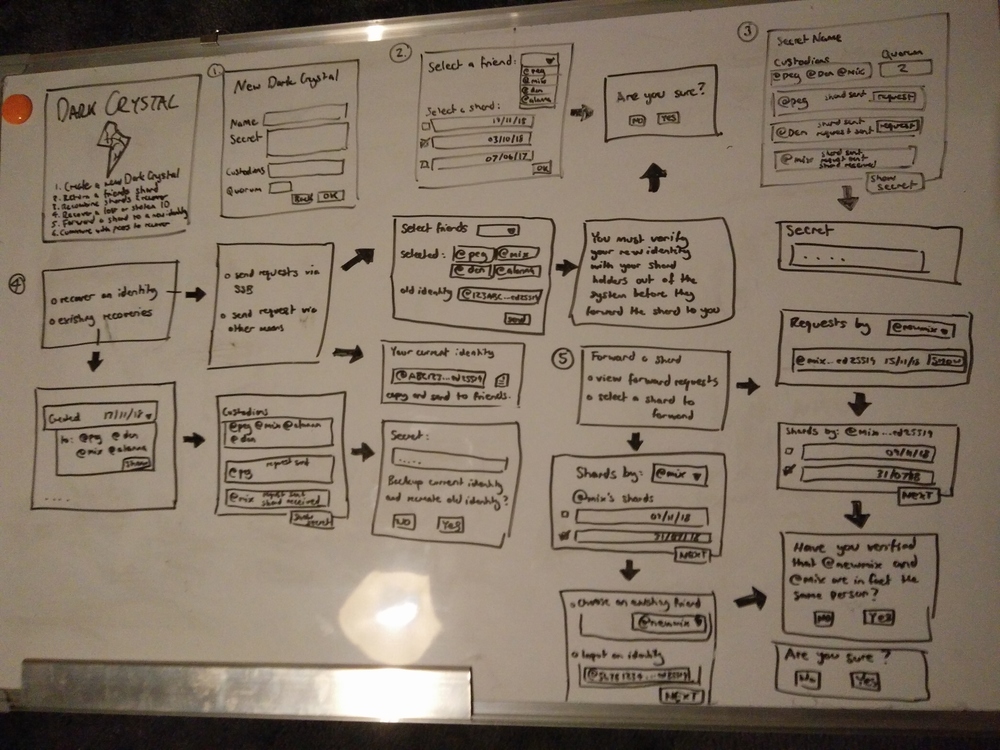 DARK CRYSTAL
1. Create a new Dark Crystal
2. Return a friends shard
3. Recombine shards & recover
4. Recover a lost or stolen ID
5. Forward a shard to a new identity
6. with peers to recover
1.
New Dark Crystal
Name
Secret
Custodians
Quorum
Back OK
2.
Select a friend:
@peg
@mix
@den
@alanna
Select a shard:
17/11/18
03/10/18
07/06/17
OK
Are you sure?
NO YES
3
Secret Name
Custodians Quorum
@Peg @Den @Mix 2
@peg shard sent request
@Den shard sent
request sent request
@mix shard sent
request sent
shard received
Show
Secret
Secret
. . . .
4
recover an identity
existing recoveries
send requests via
SSB
send request via
other means
Select friends
selected: @peg @mix
@den @alanna
old identity @123ABC...ed25519
send
You must verify
your new identity
with your shard
holders out of the
system before they
forward the shard to you
Your current identity
@ABC123...ed25519
copy and send to friends.
Created 17/11/18
to: @peg @den
@mix @alanna
Show
. . . .
Custodians
@peg @mix @alanna
@den
@peg request sent
@mix request sent
shard received
Show
Secret
Secret:
.....
Backup current identity
and recreate old identity?
NO YES
5
Forward a shard
view forward requests
select a shard to
forward
Shards by: @mix
@mix's shards
09/11/18
NEXT
Choose an existing friend
@newmix
Input an identity
NEXT
Requests by @newmix
@mix...ed25519 15/11/18 Show
Shards by: @mix...ed25519
09/11/18
NEXT
Have you verified
that @newmix and
@mix are in fact the
same person?
NO Yes
Are you sure?
No Yes